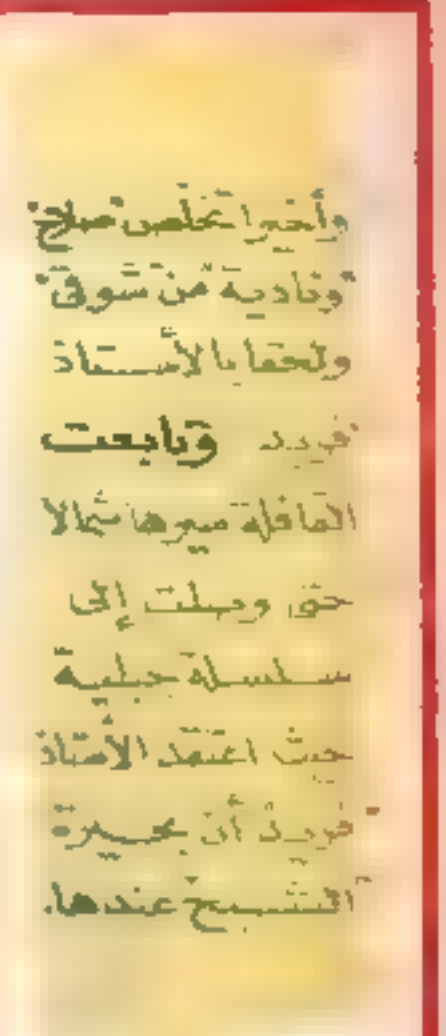 وأخيرا تخلص "صلاح"
"ونادية" من "شوقي"
ولحقا بالأستاذ
"فريد" وتابعت
القافلة سيرها شمالا
حتى وصلت إلى
سلسلة جبلية
حيث اعتقد الأستاذ
"فريد" أن بحيرة
"الشبح" عندها.